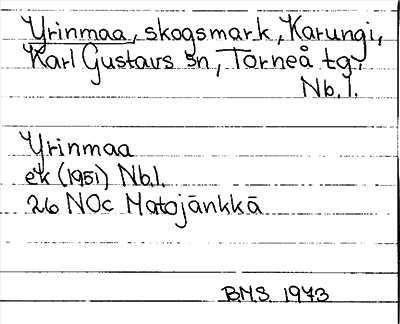 Yrinmaa, skogsmark, Karungi,
Karl Gustavs sn, Torneå tg.
Nb.l.
Yrinmaa
ek (1951) Nb.l.
26 NOc Matojänkkä
BMS 1973